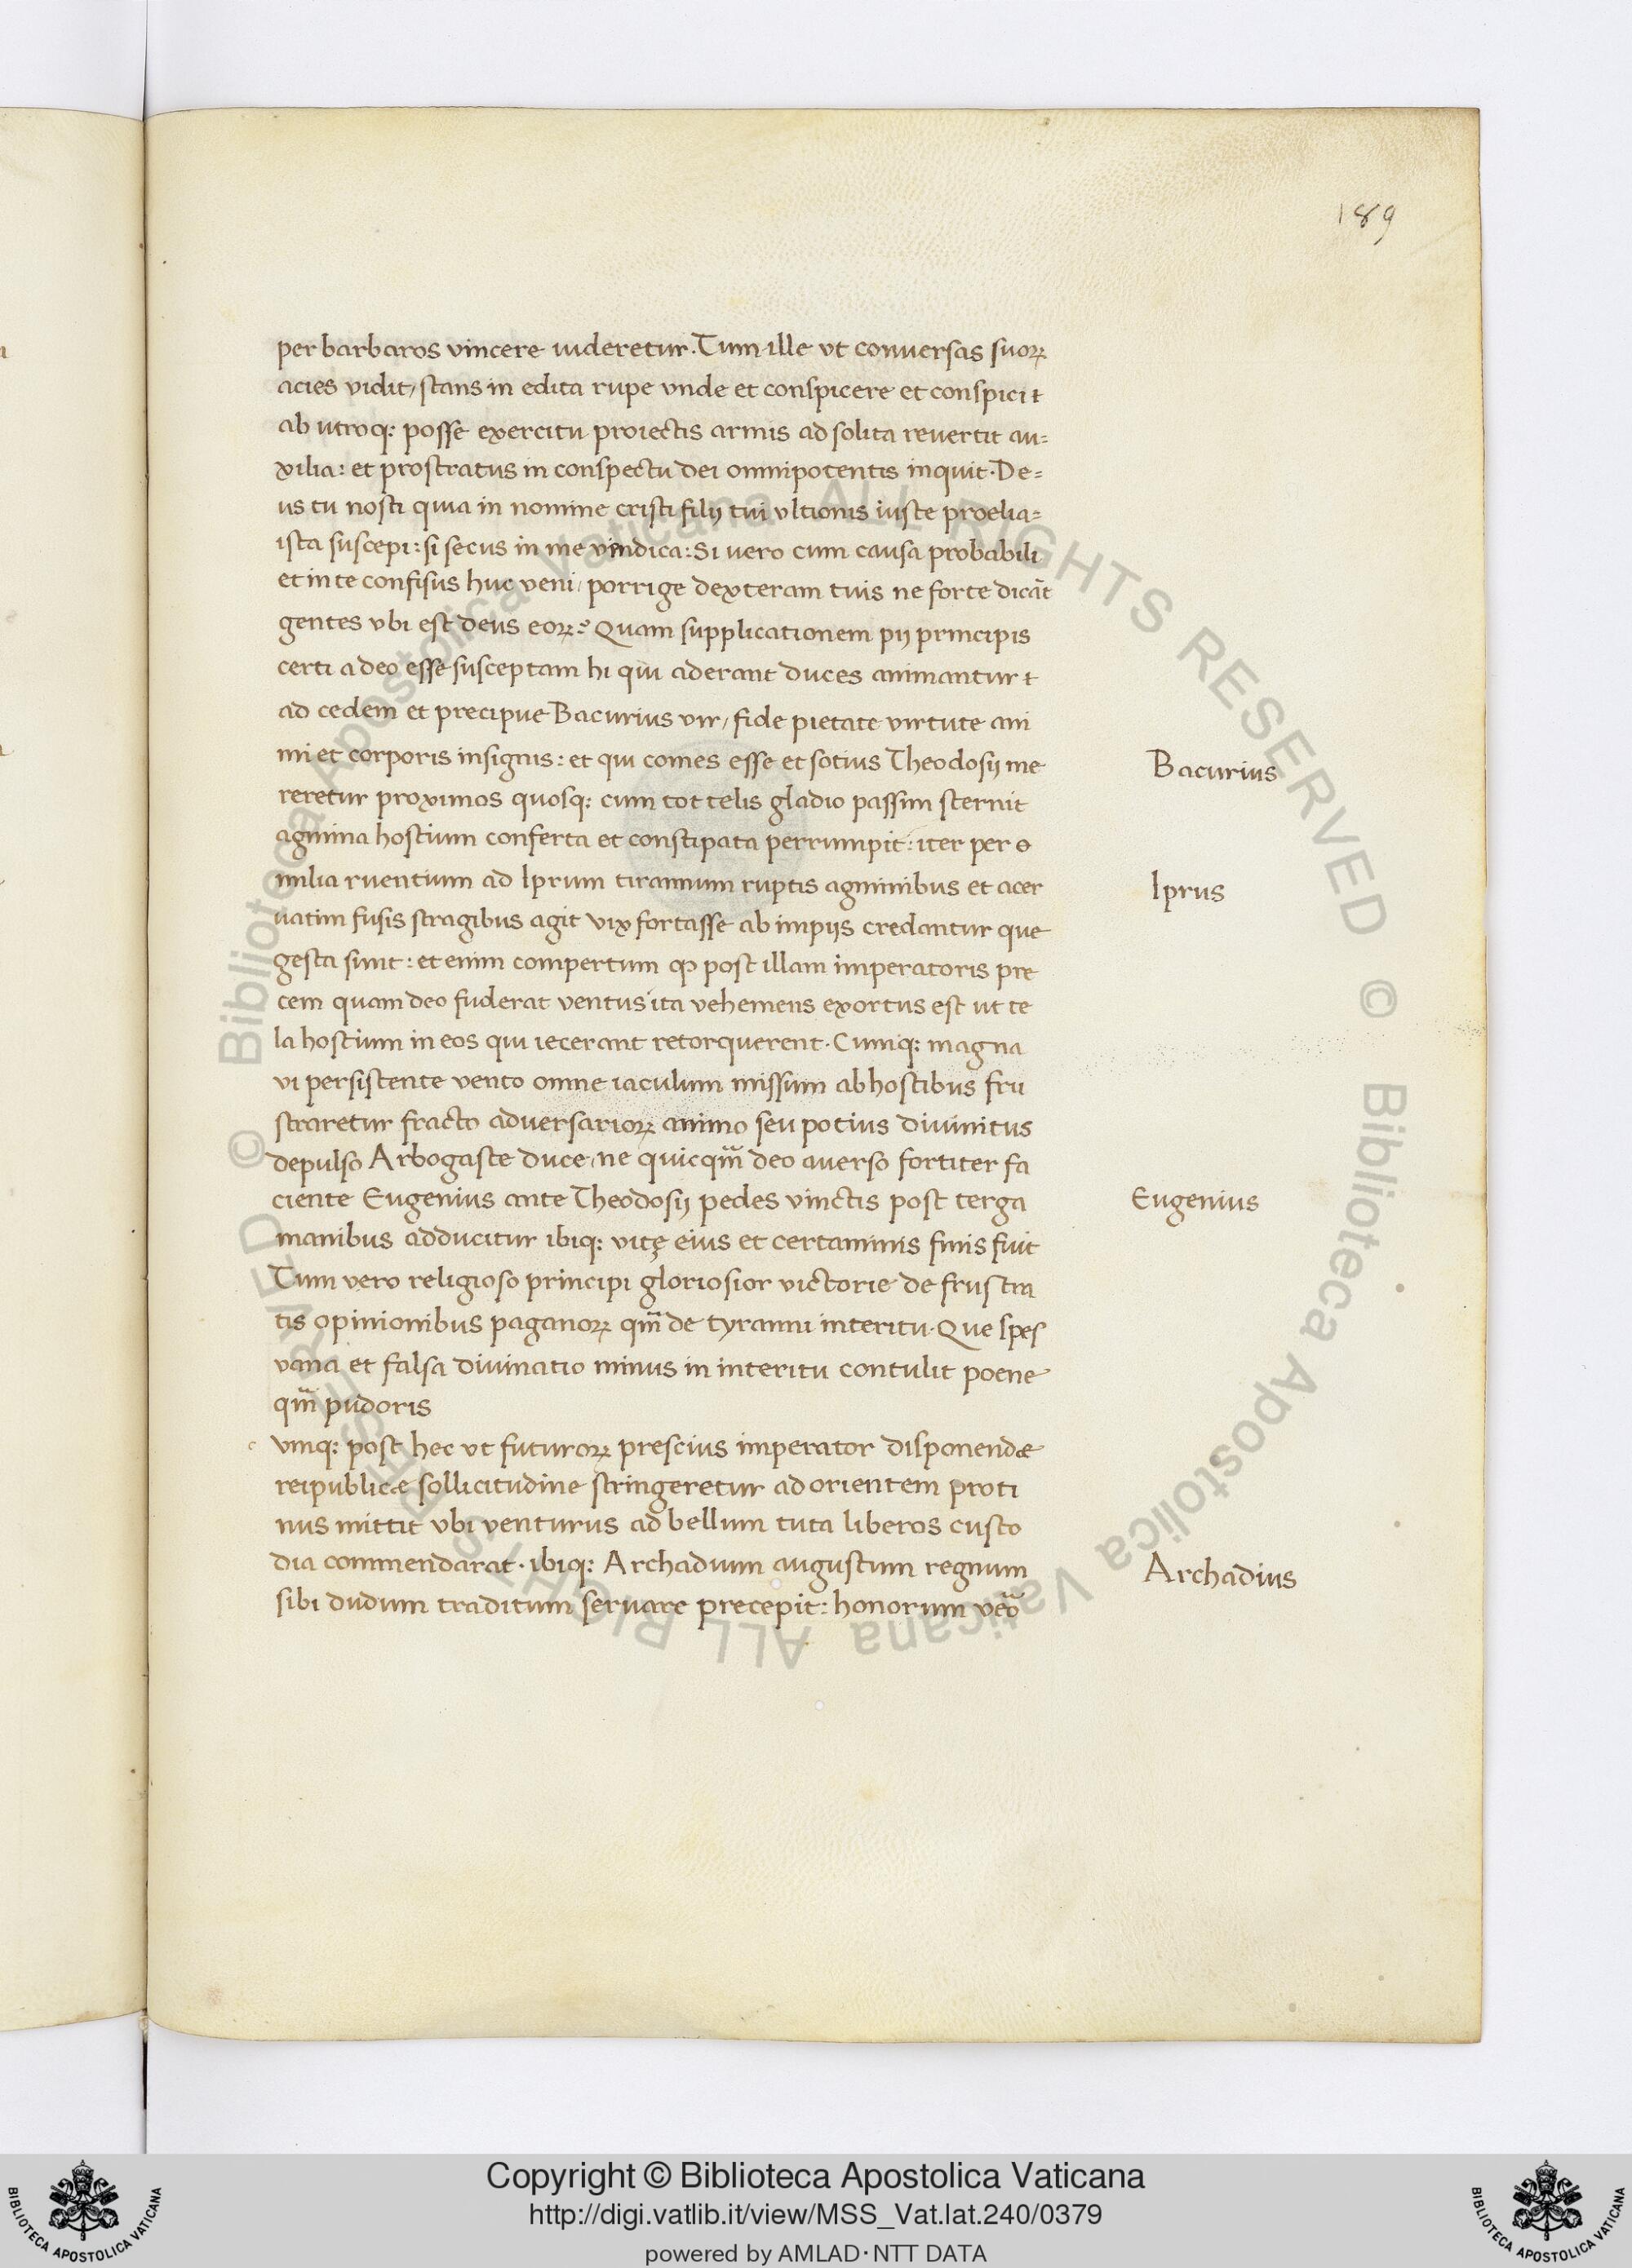 189
per barbaros vincere uideretur. Tum ille vt conuersas suoꝝ
acies vidit, stans in edita rupe vnde et conspicere et conspici ⁊
ab utroqꝫ posse exercitu proiectis armis ad solita reuertit au=
xilia: et prostratus in conspectu dei omnipotentis inquit. De=
us tu nosti quia in nomine cristi filij tui vltionis iuste proelia=
ista suscepi: si secus in me vindica: Si uero cum causa probabili
et in te confisus huc veni, porrige dexteram tuis ne forte dicāt
gentes vbi est deus eoꝝ? Quam supplicationem pij principis
certi a deo esse susceptam hi qui aderant duces animantur ⁊
ad cedem et precipue Bacurius vir, fide pietate virtute ani
mi et corporis insignis: et qui comes esse et sotius Theodosij me
reretur proximos quosqꝫ cum tot telis gladio passim sternit
agmina hostium conferta et constipata perrumpit: iter per o
milia ruentium ad Iprum tirannum ruptis agminibus et acer
uatim fusis stragibus agit vix fortasse ab impijs credantur que
gesta sunt: et enim compertum ꝙ post illam imperatoris pre
cem quam deo fuderat ventus ita vehemens exortus est ut te
la hostium in eos qui iecerant retorquerent. Cumqꝫ magna
vi persistente vento omne iaculum missum ab hostibus fru
straretur fracto aduersarioꝝ animo seu potius diuinitus
depulso Arbogaste duce, ne quicqm̄ deo auerso fortiter fa
ciente Eugenius ante Theodosij pedes vinctis post terga
manibus adducitur ibiqꝫ vitę eius et certaminis finis fuit
Tum vero religioso principi gloriosior victorie de frustra
tis opinionibus paganoꝝ qm̄ de tyranni interitu. Que spes
vana et falsa diuinatio minus in interitu contulit poene
qm̄ pudoris
c vmqꝫ post hec vt futuroꝝ prescius imperator disponendæ
reipublicæ sollicitudine stringeretur ad orientem proti
nus mittit vbi venturus ad bellum tuta liberos custo
dia commendarat. ibiqꝫ Archadium augustum regnum
sibi dudum traditum seruare precepit: honorum vēo
Bacurius
Iprus
Eugenius
Archadius
© Biblioteca Apostolica Vaticana ALL RIGHTS RESERVED © Biblioteca Apostolica Vaticana ALL RIGHTS RESERVED
Copyright © Biblioteca Apostolica Vaticana
http://digi.vatlib.it/view/MSS_Vat.lat.240/0379
powered by AMLAD·NTT DATA
BIBLIOTECA APOSTOLICA VATICANA
BIBLIOTECA APOSTOLICA VATICANA